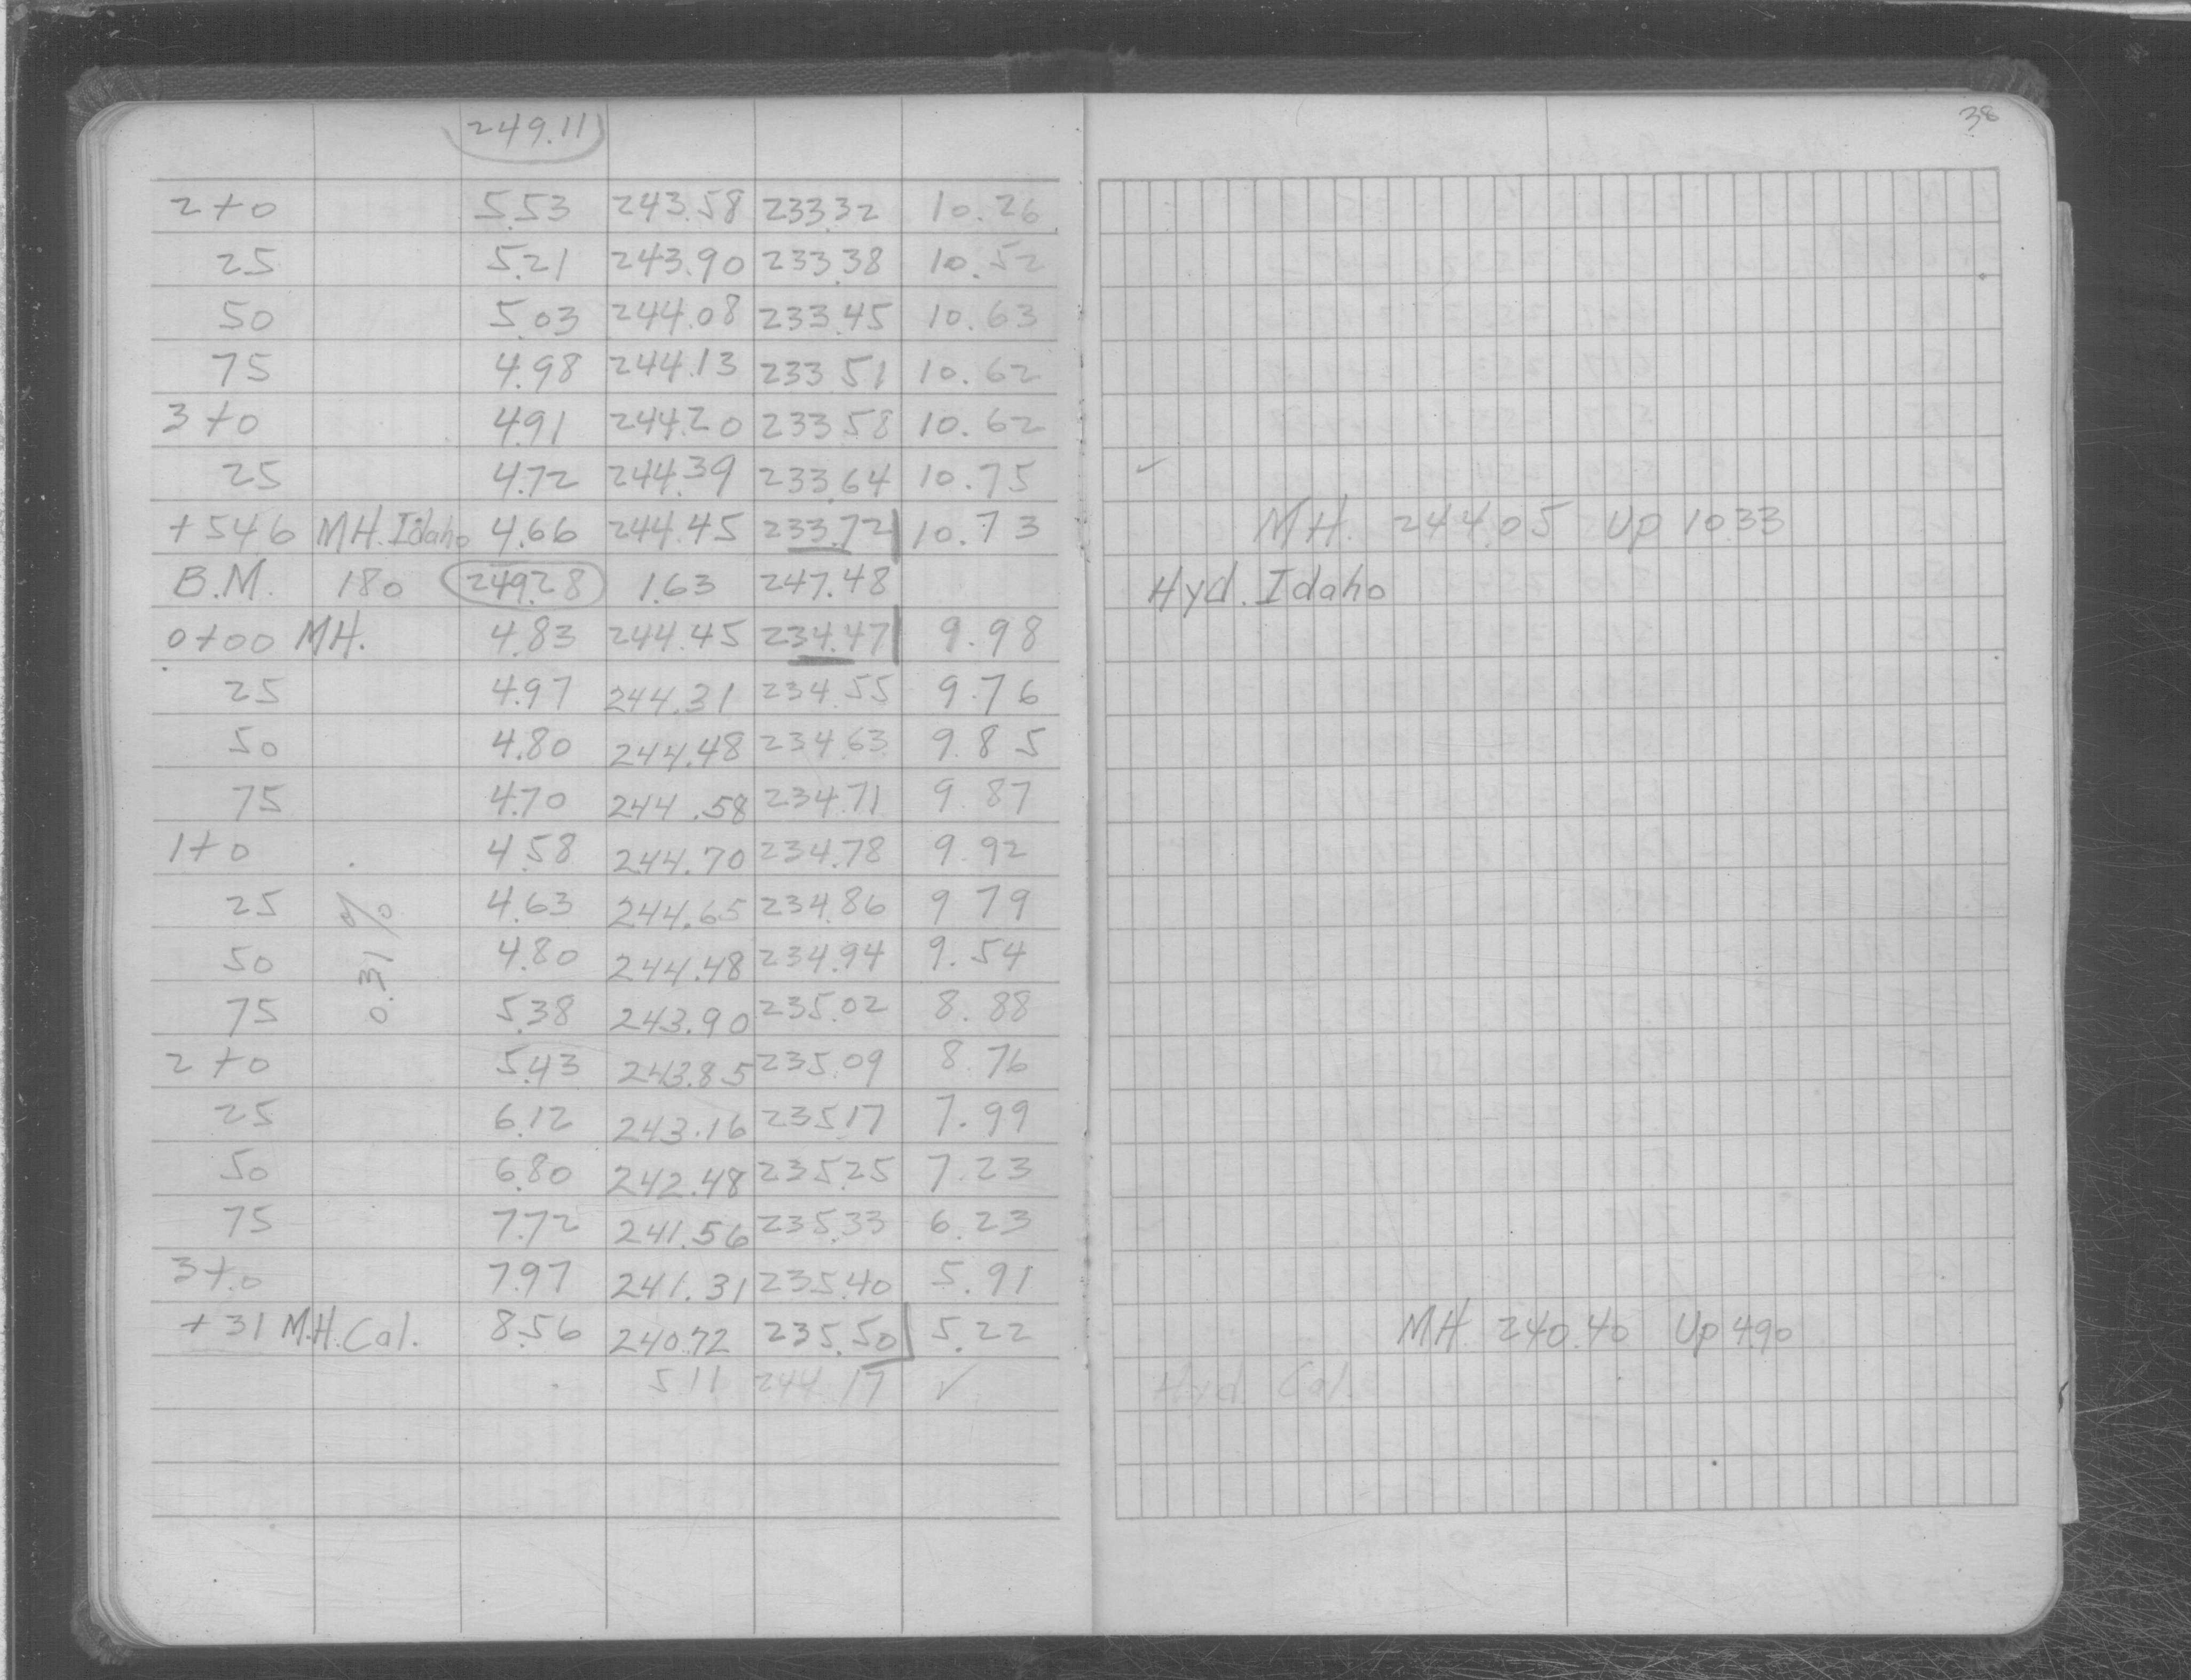 38
249.11
2+0 5.53 243.58 233.32 10.26
25 5.21 243.90 233.38 10.52
50 5.03 244.08 233.45 10.63
75 4.98 244.13 233 51 10.62
3+0 4.91 244.20 233 58 10.62
25 4.72 244.39 233.64 10.75 ✓
+546 MH. Idaho 4.66 244.45 233.72 10.73 MH. 244.05 Up 10.33
B.M. 180 249.28 1.63 247.48 Hyd. Idaho
0+00 MH. 4.83 244.45 234.47 9.98
25 4.97 244.31 234.55 9.76
50 4.80 244.48 234.63 9.85
75 4.70 244.58 234.71 9.87
1+0 4.58 244.70 234.78 9.92
25 4.63 244.65 234.86 9 79
50 4.80 244.48 234.94 9.54
75 5.38 243.90 235.02 8.88
0.31 %
2+0 5.43 243.85 235.09 8.76
25 6.12 243.16 235.17 7.99
50 6.80 242.48 235.25 7.23
75 7.72 241.56 235.33 6.23
3+0 7.97 241.31 235.40 5.91
+31 M.H. Cal. 8.56 240.72 235.50 5.22 MH 240.40 Up 4.90
5.11 244.17 ✓ Hyd Cal.